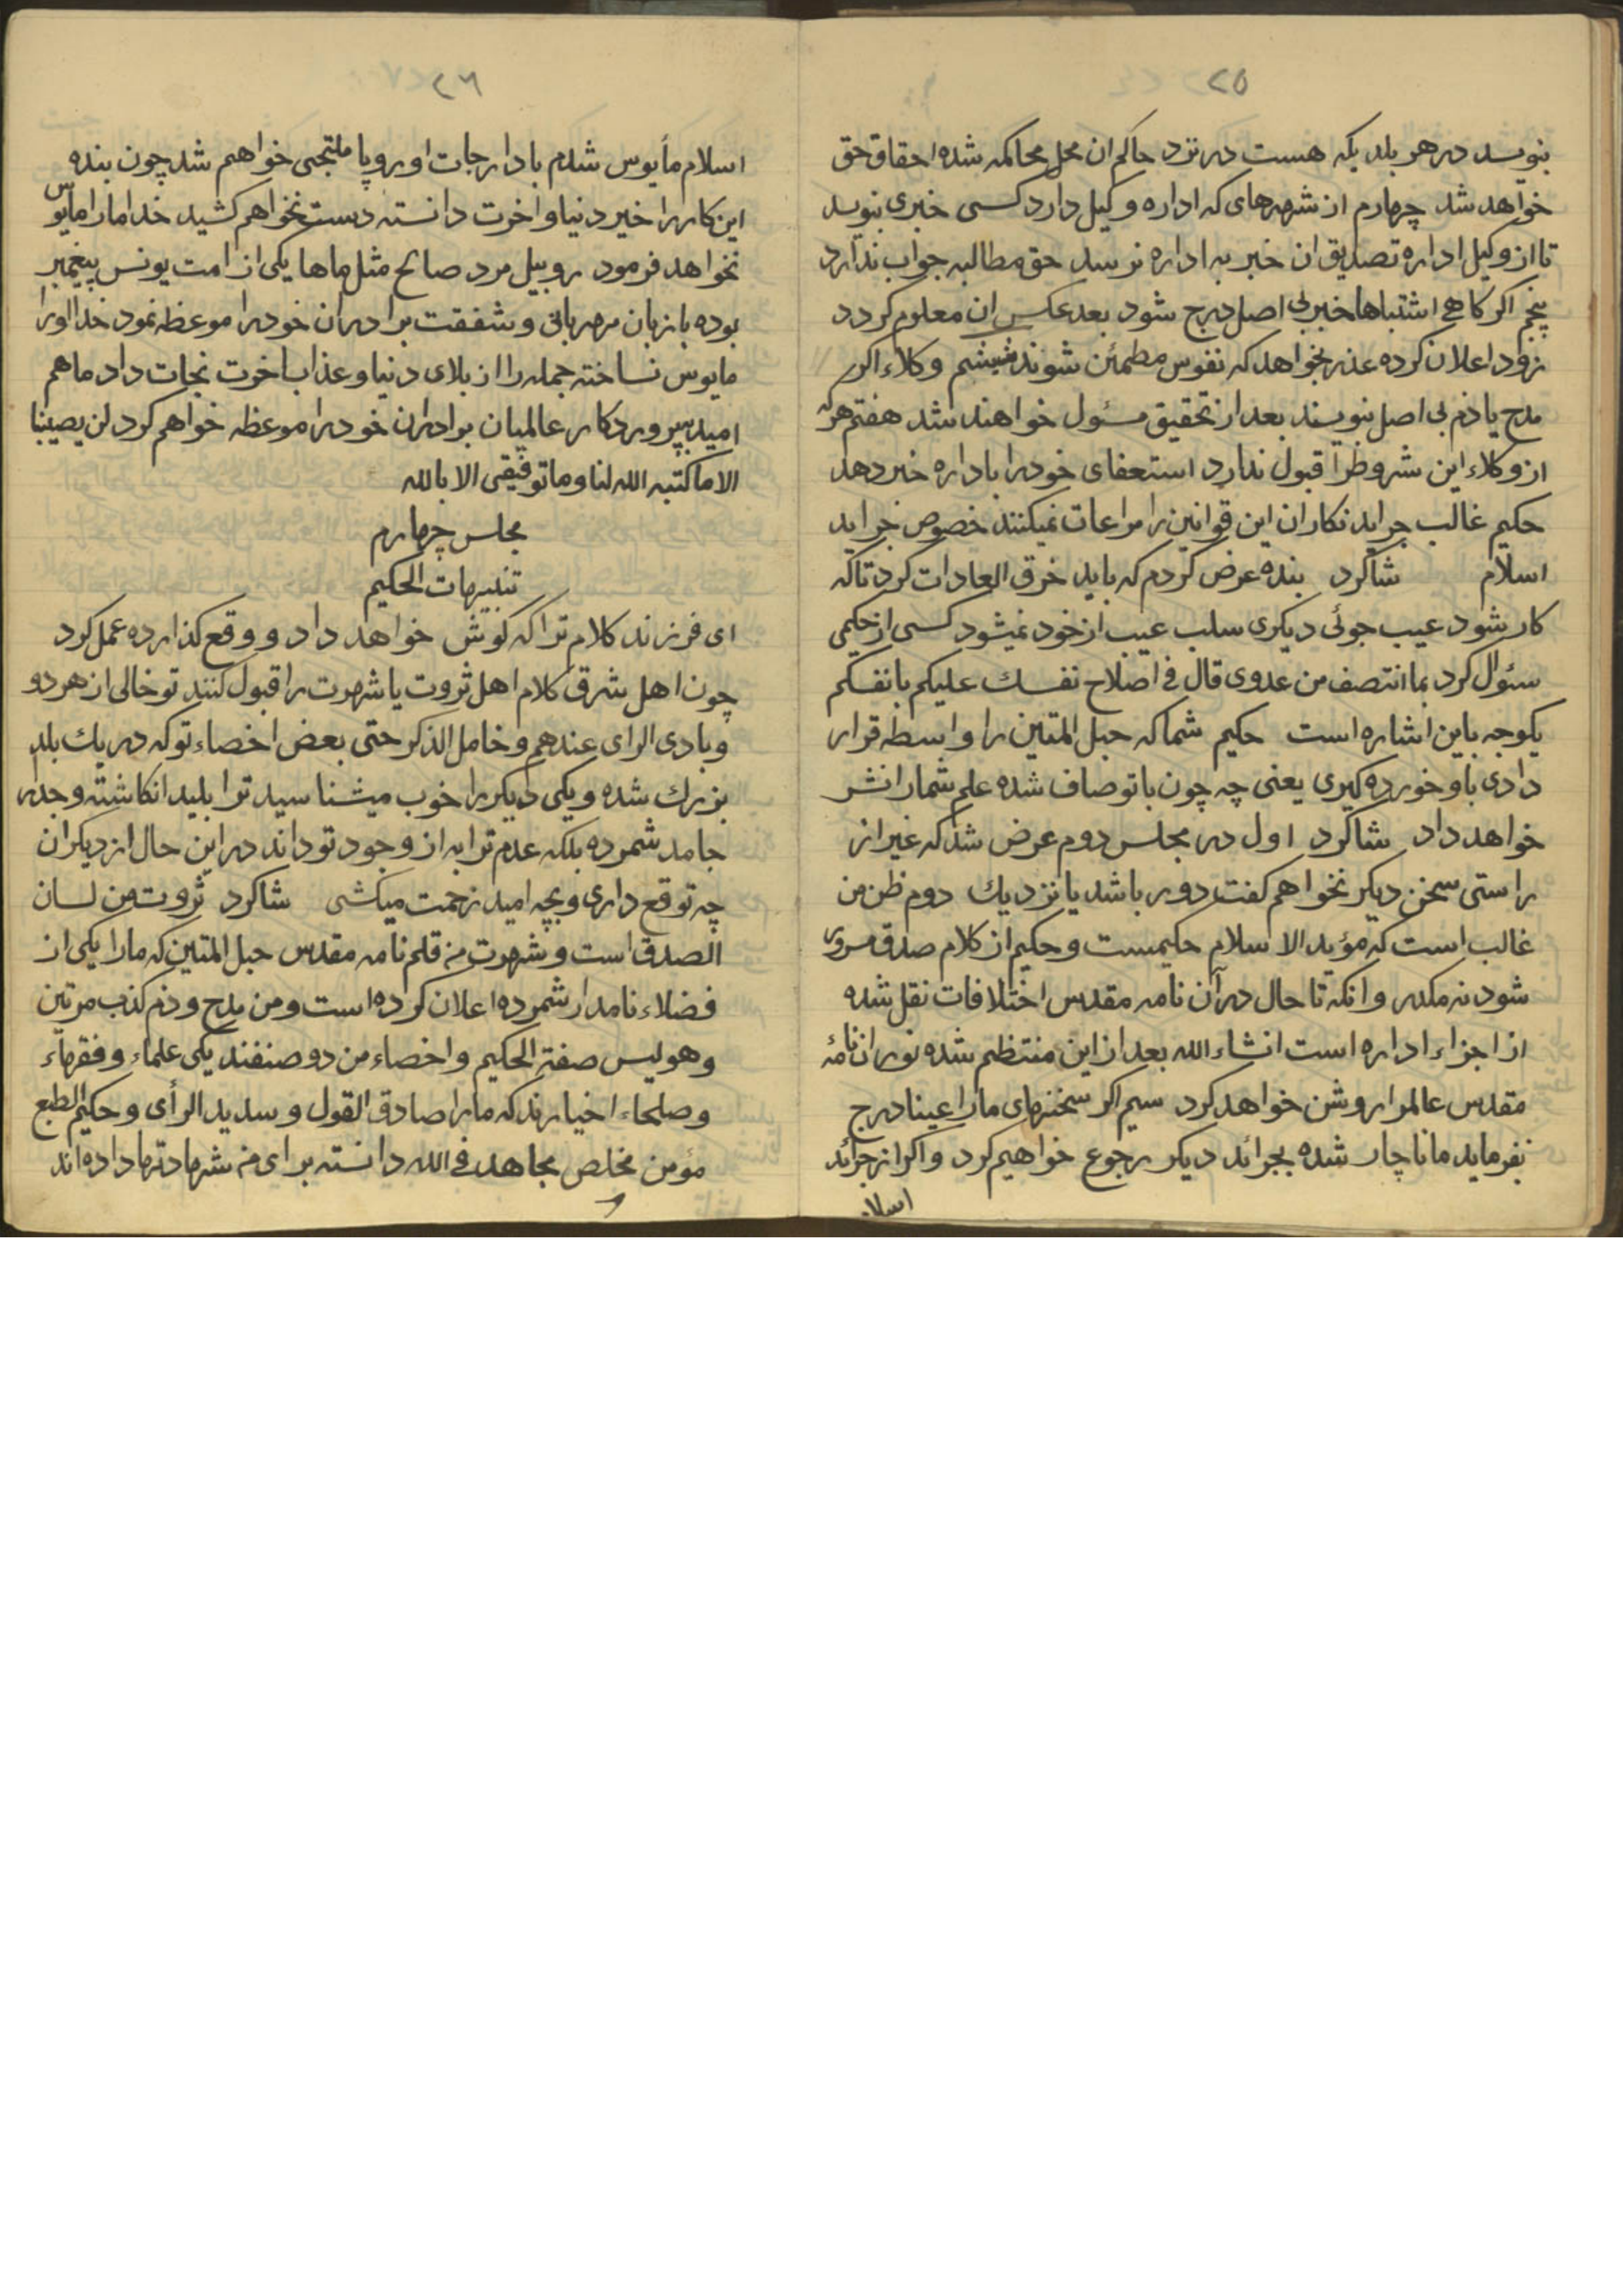 ٢٥
بنویسد در هر بلد یکه هست در نزد حاکم ان محل محاکمه شده احقاق حق
خواهد شد چهارم از شهرهای که اداره وکیل دارد کسی خبری بنویسد
تا از وکیل اداره تصدیق ان خبر به اداره نرسد حق مطالبه جواب ندارد
پنجم اکر کاهی اشتباها خبر بی اصل درج شود بعد عکس ان معلوم کردد
زود اعلان کرده عذر بخواهد که نفوس مطمئن شوند ششم وکلاء اکر
مدح یا ذم بی اصل بنویسند بعد از تحقیق مسئول خواهند شد هفتم هرکه
از وکلاء این شروط را قبول ندارد استعفای خود را باداره خبر دهد
حکیم غالب جراید نکاران این قوانین را مراعات نمیکنند خصوص جراید
اسلام شاکرد بنده عرض کردم که باید خرق العادات کرد تا که
کار شود عیب جوئی دیکری سلب عیب از خود نمیشود کسی از حکیمی
سئوال کرد بما انتصف من عدوی قال فی اصلاح نفسک علیکم بانفسکم
یکوجه باین اشاره است حکیم شما که حبل المتین را واسطه قرار
دادی باو خورده کیری یعنی چه چون با تو صاف شده علم شمارا نشر
خواهد داد شاکرد اول در مجلس دوم عرض شد که غیر از
راستی سخن دیکر نخواهم کفت دور باشد یا نزدیک دوم ظن من
غالب است که مؤید الاسلام حکیمست و حکیم از کلام صدق مسرور
شود نه مکدر وانکه تا حال در آن نامه مقدس اختلافات نقل شده
از اجزاء اداره است انشاء الله بعد از این منتظم شده نور ان نامهٔ
مقدس عالم را روشن خواهد کرد سیم اکر سخنهای مارا عینا درج
نفرماید ما ناچار شده بجرائد دیکر رجوع خواهیم کرد واکر از جرائد
اسلا
٢٦
اسلام مأیوس شدم با دارجات اوروپا ملتجی خواهم شد چون بنده
این کار را خیر دنیا و اخرت دانسته دست نخواهم کشید خدا مارا مایوس
نخواهد فرمود روبیل مرد صالح مثل ماها یکی از امت یونس پیغمبر
بوده با زبان مهربانی و شفقت برادران خود را موعظه نمود خدا اورا
مایوس نساخته جمله را از بلای دنیا و عذاب اخرت نجات داد ما هم
امید بپروردکار عالمیان برادران خود را موعظه خواهم کرد لن یصیبنا
الا ما کتبه الله لنا و ما توفیقی الا بالله
مجلس چهارم
تنبیهات الحکیم
ای فرزند کلام ترا که کوش خواهد داد و وقع کذارده عمل کرد
چون اهل شرق کلام اهل ثروت یا شهرت را قبول کنند تو خالی از هر دو
و بادی الرای عندهم و خامل الذکر حتی بعض اخصاء تو که در یک بلد
بزرک شده و یکی دیکر را خوب میشناسید ترا بلید انکاشته و جدار
جامد شمرده بلکه عدم ترا به از وجود تو داند در این حال از دیکران
چه توقع داری و بچه امید زحمت میکشی شاکرد ثروت من لسان
الصدق است و شهرت من قلم نامه مقدس حبل المتین که مارا یکی از
فضلاء نامدار شمرده اعلان کرده است و من مدح و ذم کذب مرتین
و هو لیس صفة الحکیم و اخصاء من دو صنفند یکی علماء و فقهاء
و صلحاء اخیارند که مارا صادق القول و سدید الرأی و حکیم الطبع
مؤمن مخلص مجاهد فی الله دانسته برای من شهادتها داده اند
و